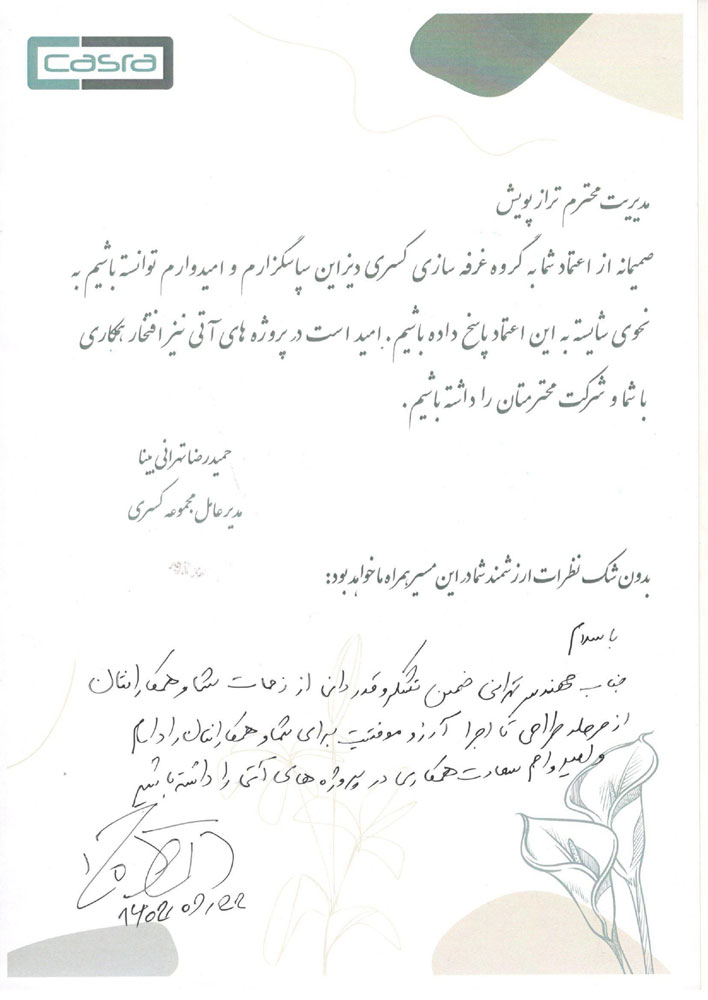 casra
مدیریت محترم تراز پویش
صمیمانه از اعتماد شما به گروه غرفه سازی کسری دیزاین سپاسگزارم و امیدوارم توانسته باشیم به
نحوی شایسته به این اعتماد پاسخ داده باشیم. امید است در پروژه های آتی نیز افتخار همکاری
با شما و شرکت محترمتان را داشته باشیم.
حمیدرضا تهرانی بینا
مدیرعامل مجموعه کسری
بدون شک نظرات ارزشمند شما در این مسیر همراه ما خواهد بود:
با سلام
جناب مهندس تهرانی ضمن تشکر و قدردانی از زحمات شما و همکارانتان
از مرحله طراحی تا اجرا آرزو موفقیت برای شما و همکارانتان را دارم
و امیدوارم سعادت همکاری در پروژه های آتی را داشته باشیم